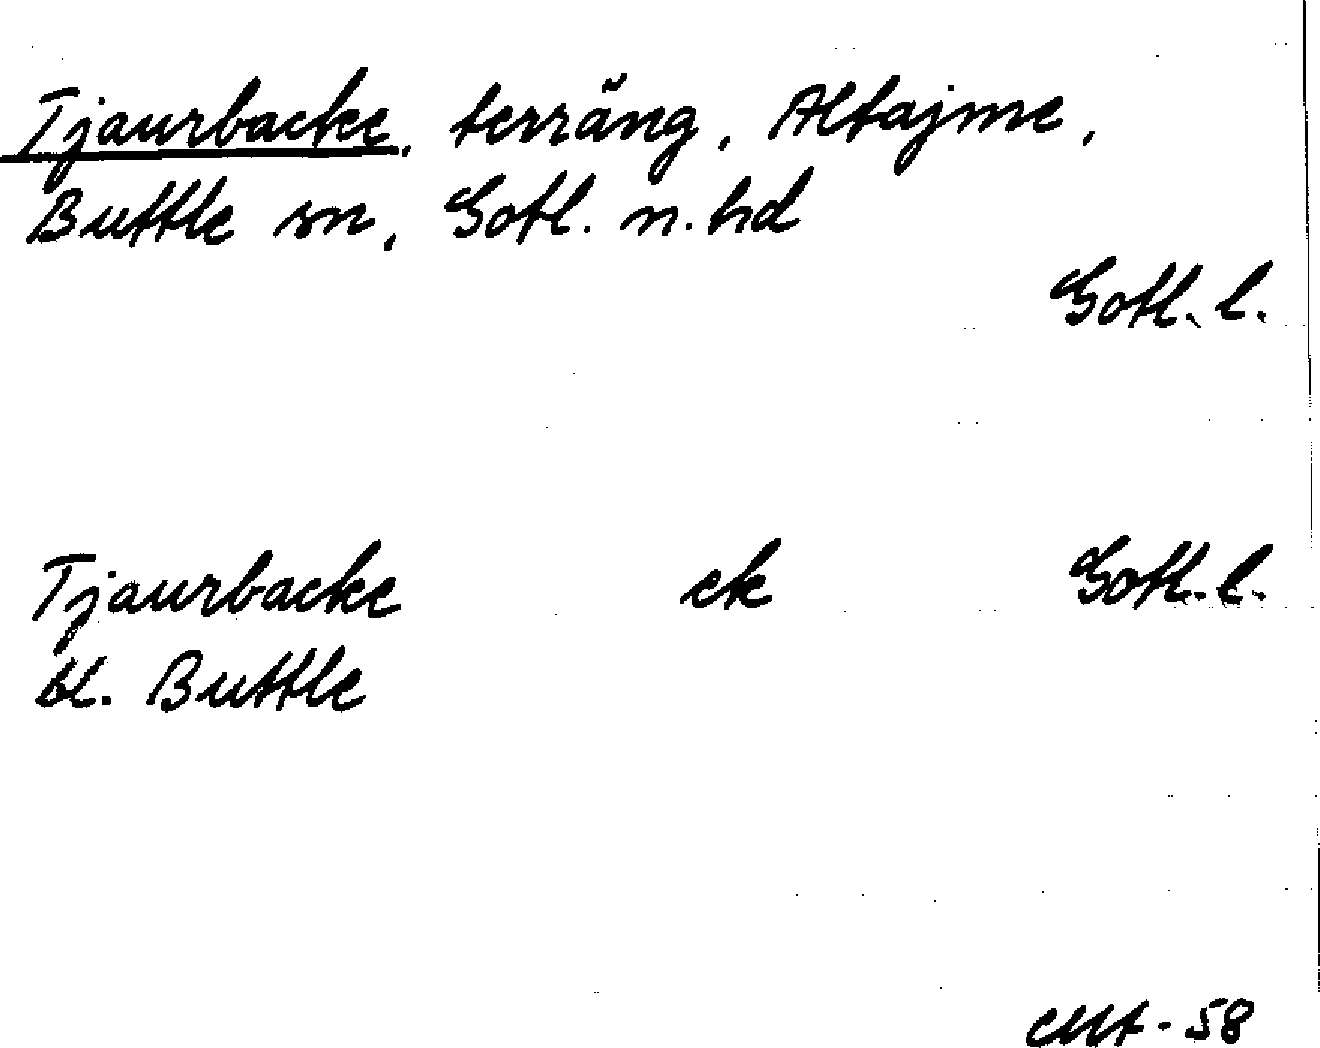 Tjaurbacke, terräng, Altajme,
Buttle sn, Gotl. n. hd
Gotl. l.
Tjaurbacke ek Gotl. l.
bl. Buttle